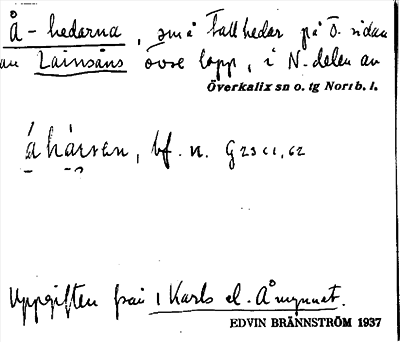 Å-hedarna, små tallhedar på ö. sidan
av Lainsåns övre lopp, i N-delen av
Överkalix sn o. tg Norrb. l.
åhårran, bf. n. G23 c1, 62
Uppgiften från 1 Karls el. Åmynnet.
EDVIN BRÄNNSTRÖM 1937